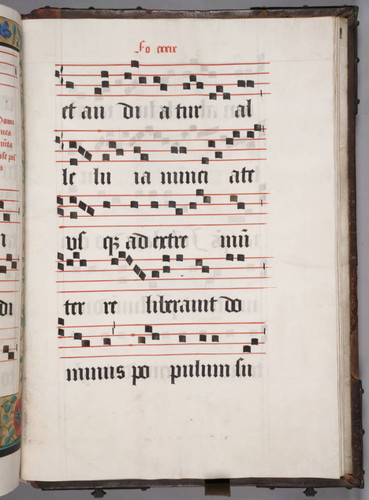 et au di a tur al
le lu ia nunci ate
vs qz ad extre mū
ter re liberauit do
minus po pulum su